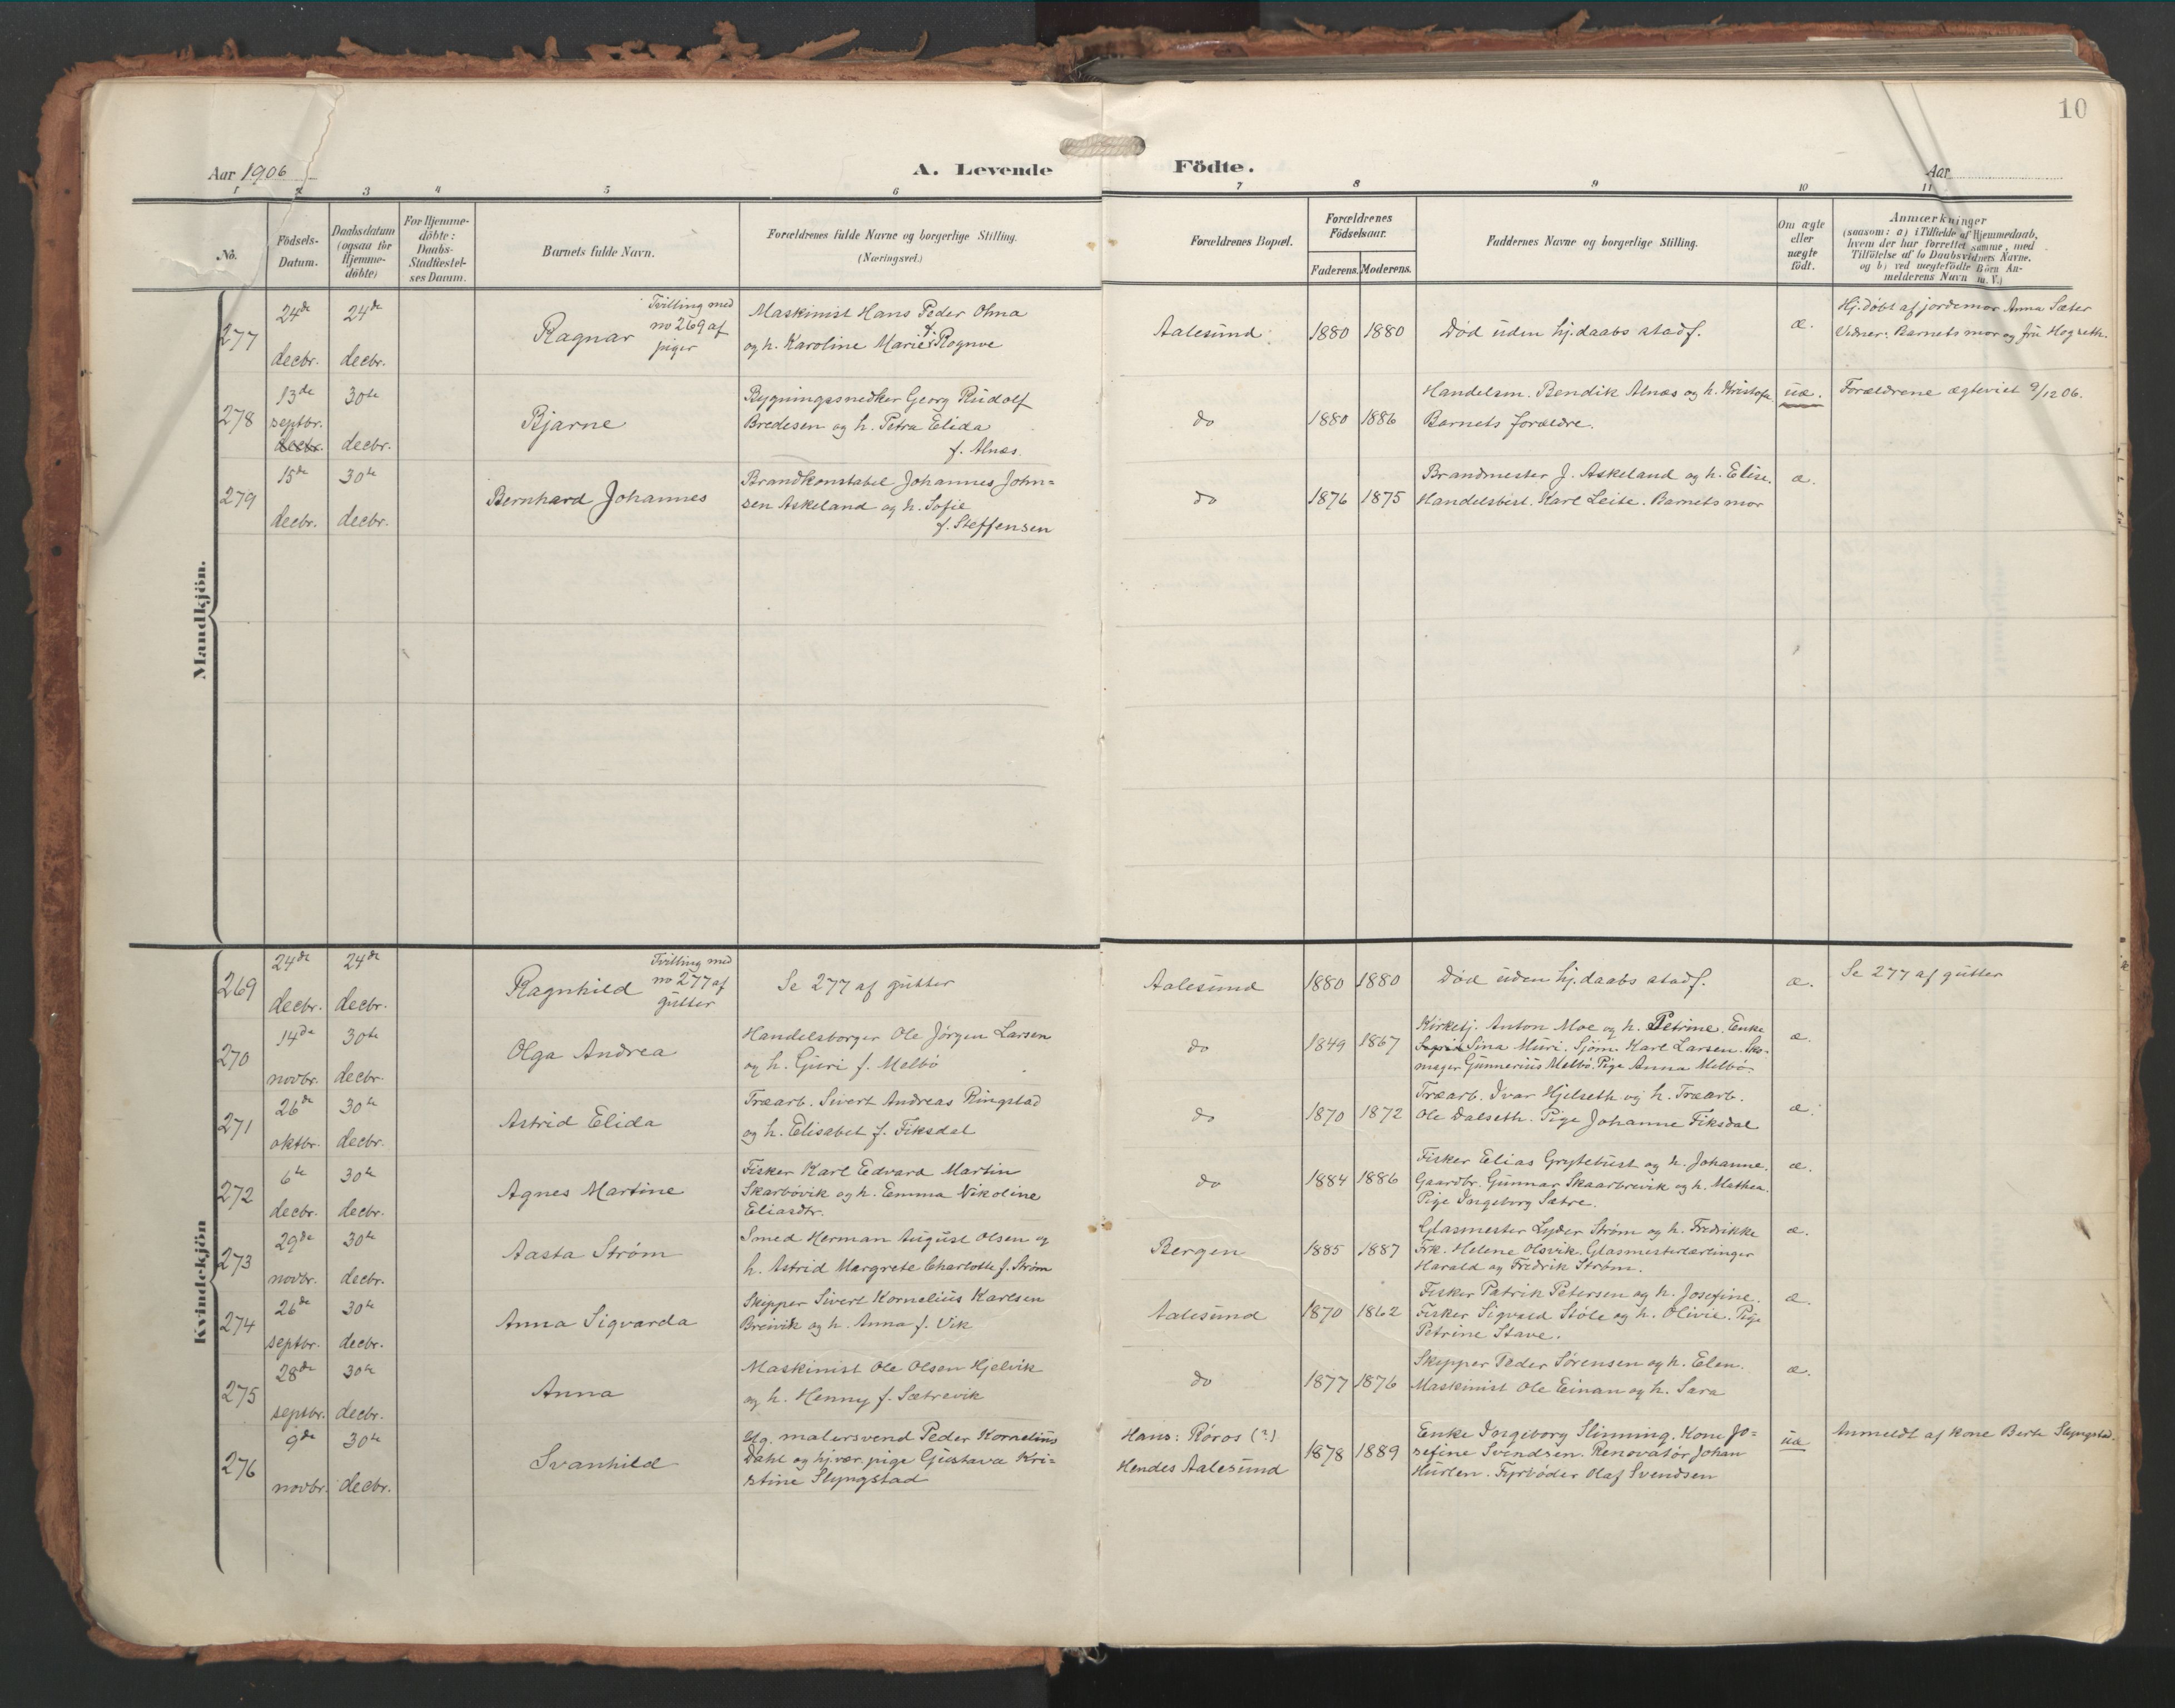 10
Aar 1906
A. Levende Födte.
Aar
1 2 3 4 5 6 7 8 9 10 11
No.
Födsels-Datum.
Daabsdatum (ogsaa for Hjemme-döbte)
For Hjemme-döbte: Daabs-Stadfæstel-ses Datum.
Barnets fulde Navn.
Forældrenes fulde Navne og borgerlige Stilling.
(Næringsvei.)
Forældrenes Bopæl.
Forældrenes Födselsaar.
Faderens. Moderens.
Faddernes Navne og borgerlige Stilling.
Om ægte eller uægte födt.
Anmærkninger
(saasom: a) i Tilfælde af Hjemmedaab,
hvem der har forrettet samme, med
Tilföielse af to Daabsvidners Navne,
og b) ved uægtefödte Börn An-
melderens Navn m. V.)
Mandkjön.
277
24de decbr.
24de decbr.
Ragnar
Tvilling med
no 269 af
piger
Maskinist Hans Peder Ohna
og h. Karoline Marie f. Rognve
Aalesund.
1880 1880
Død uden hj.daabs stadf.
æ.
Hj.døbt af jordemor Anna Sæter
Vidner: Barnets mor og fru Hogseth.
278
13de septbr. decbr.
30te decbr.
Bjarne
Bygningssnedker Georg Rudolf
Bredesen og h. Petra Elida
f. Alnæs.
do
1880 1886
Handelsm. Bendik Alnæs og h. Kristofa
Barnets forældre.
uæ.
Forældrene ægteviet 9/12 06.
279
15de decbr.
30te decbr.
Bernhard Johannes
Brandkonstabel Johannes John=
sen Askeland og h. Sofie
f. Steffensen
do
1876 1875
Brandmester J. Askeland og h. Elise.
Handelsbest. Karl Leite. Barnets mor
æ.
Kvindekjön
269
24de decbr.
24de decbr.
Ragnhild
Tvilling med
no 277 af
gutter
Se 277 af gutter
Aalesund
1880 1880
Død uden hj.daabs stadf.
æ.
Se 277 af gutter
270
14de novbr.
30te decbr.
Olga Andrea
Handelsborger Ole Jørgen Larsen
og h. Guri f. Melbø
do
1849 1867
Kirketj. Anton Moe og h. Petrine. Enke
Sina Muri. Sjøm. Karl Larsen. Sko-
mager Gunnerius Melbø. Pige Anna Melbø.
æ.
271
26de oktbr.
30te decbr.
Astrid Elida
Træarb. Sivert Andreas Ringstad
og h. Elisabet f. Fiksdal
do
1870 1872
Træarb. Ivar Hjelseth og h. Træarb.
Ole Dalseth. Pige Johanne Fiksdal
æ.
272
6te decbr.
30te decbr.
Agnes Martine
Fisker Karl Edvard Martin
Skarbøvik og h. Emma Nikoline
Eliasdtr.
do
1884 1886
Fisker Elias Grytebust og h. Johanne.
Gaardbr. Gunnar Skaarbrevik og h. Mathea.
Pige Ingeborg Sætre.
æ.
273
29de novbr.
30te decbr.
Aasta Strøm
Smed Herman August Olsen og
h. Astrid Margrete Charlotte f. Strøm
Bergen
1885 1887
Glasmester Lyder Strøm og h. Fredrikke
Frk. Helene Olsvik. Glasmesterlærlinger
Harald og Fredrik Strøm.
æ.
274
26de septbr.
30te decbr.
Anna Sigvarda
Skipper Sivert Kornelius Karlsen
Breivik og h. Anna f. Vik
Aalesund
1870 1862
Fisker Patrik Petersen og h. Josefine.
Fisker Sigvald Støle og h. Olivie. Pige
Petrine Stave.
æ.
275
28de septbr.
30te decbr.
Anna
Maskinist Ole Olsen Hjelvik
og h. Henny f. Sætrevik
do
1877 1876
Skipper Peder Sørensen og h. Elen.
Maskinist Ole Einan og h. Sara
æ.
276
9de novbr.
30te decbr.
Svanhild
Ug. malersvend Peder Kornelius
Dahl og hj.vær. pige Gustava Kri=
stine Slyngstad
Hans: Røros (?)
Hendes Aalesund
1878 1889
Enke Ingeborg Slinning. Kone Jo=
sefine Svendsen. Renovatør Johan
Hurlen. Fyrbøder Olaf Svendsen
uæ
Anmeldt af kone Berte Slyngstad.